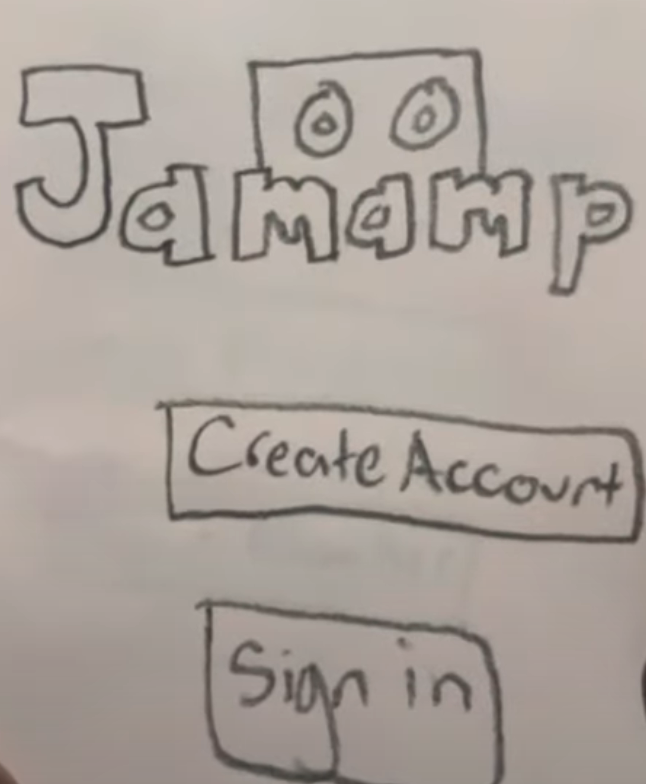 Jamamp
Create Account
Sign in